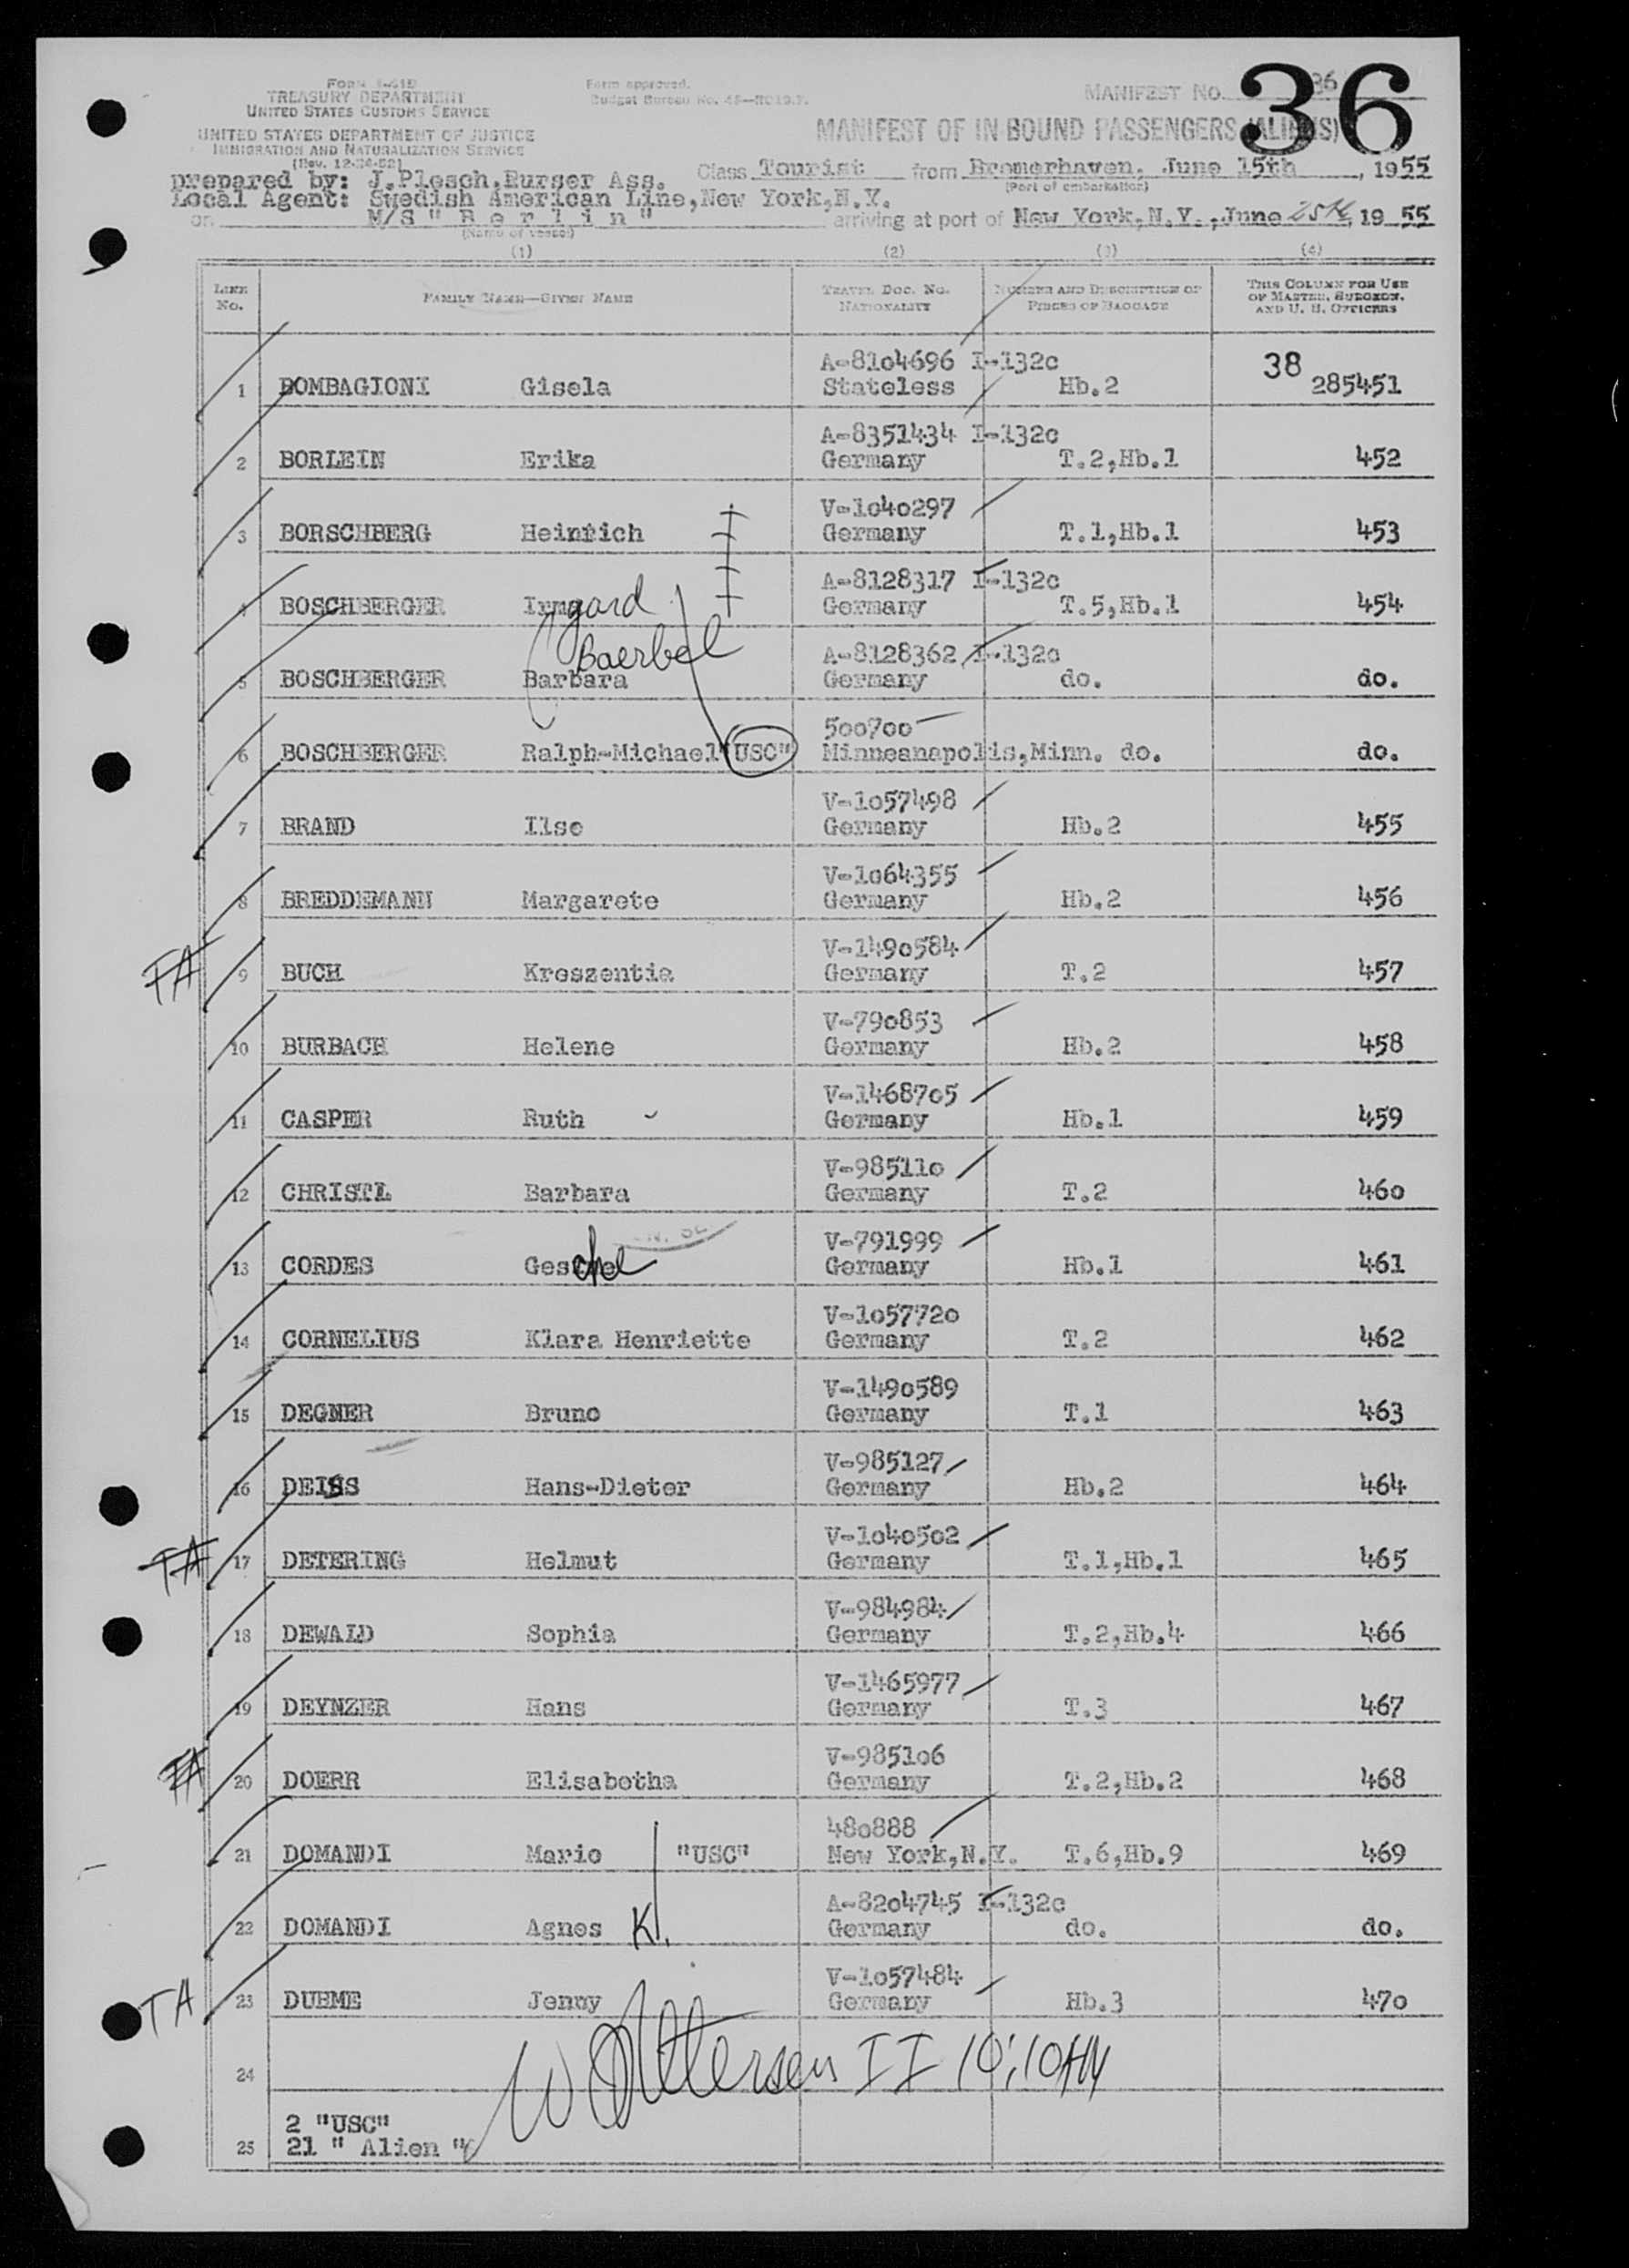 Form I-418
TREASURY DEPARTMENT
UNITED STATES CUSTOMS SERVICE
UNITED STATES DEPARTMENT OF JUSTICE
IMMIGRATION AND NATURALIZATION SERVICE
(Rev. 12-24-52)
Form approved.
Budget Bureau No.
MANIFEST No. 36
36
MANIFEST OF IN-BOUND PASSENGERS (ALIENS)
prepared by: J.Plesch,Purser Ass. Class Tourist from Bremerhaven, June 15th, 1955
(Port of embarkation)
Local Agent: Swedish American Line,New York,N.Y.
on M/S " B e r l i n " arriving at port of New York,N.Y.,June 25th, 19 55
(Name of vessel)
(1) (2) (3) (4)
LINE No. FAMILY NAME—GIVEN NAME TRAVEL DOC. No. NATIONALITY NUMBER AND DESCRIPTION OF PIECES OF BAGGAGE THIS COLUMN FOR USE OF MASTER, SURGEON, AND U. S. OFFICERS
A-8104696 I-132c 38
1 BOMBAGIONI Gisela Stateless Hb.2 285451
A-8351434 I-132c
2 BORLEIN Erika Germany T.2,Hb.1 452
V-1040297
3 BORSCHBERG Heinrich Germany T.1,Hb.1 453
A-8128317 I-132c
4 BOSCHBERGER Irmgard Germany T.5,Hb.1 454
Baerbel A-8128362 I-132c
5 BOSCHBERGER Barbara Germany do. do.
500700
6 BOSCHBERGER Ralph-Michael "USC" Minneanapolis,Minn. do. do.
V-1057498
7 BRAND Ilse Germany Hb.2 455
V-1064355
8 BREDDEMANN Margarete Germany Hb.2 456
V-1490584
TA 9 BUCH Kreszentia Germany T.2 457
V-790853
10 BURBACH Helene Germany Hb.2 458
V-1468705
11 CASPER Ruth Germany Hb.1 459
V-985110
12 CHRISTL Barbara Germany T.2 460
V-791999
13 CORDES Gesche Germany Hb.1 461
V-1057720
14 CORNELIUS Klara Henriette Germany T.2 462
V-1490589
15 DEGNER Bruno Germany T.1 463
V-985127
16 DEISS Hans-Dieter Germany Hb.2 464
V-1040502
TA 17 DETERING Helmut Germany T.1,Hb.1 465
V-984984
18 DEWALD Sophia Germany T.2,Hb.4 466
V-1465977
19 DEYNZER Hans Germany T.3 467
V-985106
TA 20 DOERR Elisabetha Germany T.2,Hb.2 468
480888
21 DOMANDI Mario "USC" New York,N.Y. T.6,Hb.9 469
A-8204745 I-132c
22 DOMANDI Agnes K. Germany do. do.
V-1057484
TA 23 DUBME Jenny Germany Hb.3 470
24 II 10:10AM
2 "USC"
25 21 " Alien "